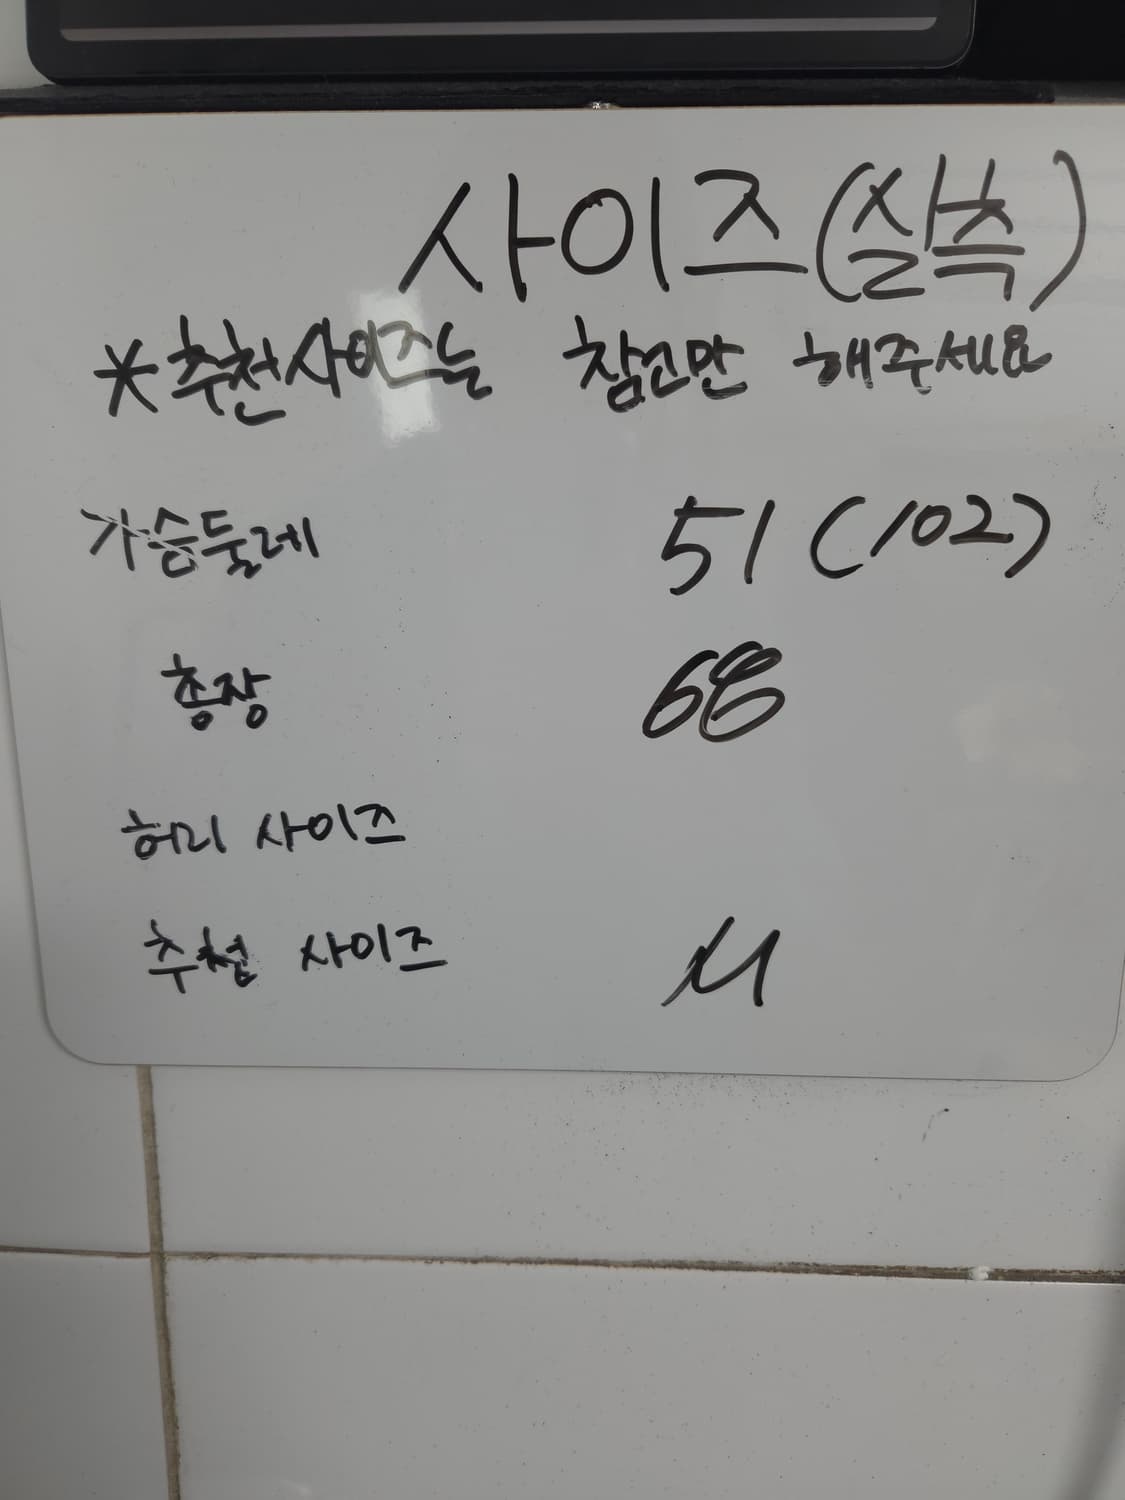 사이즈(실측)
*추천사이즈는 참고만 해주세요
가슴둘레 51 (102)
총장 68
허리 사이즈
추천 사이즈 M